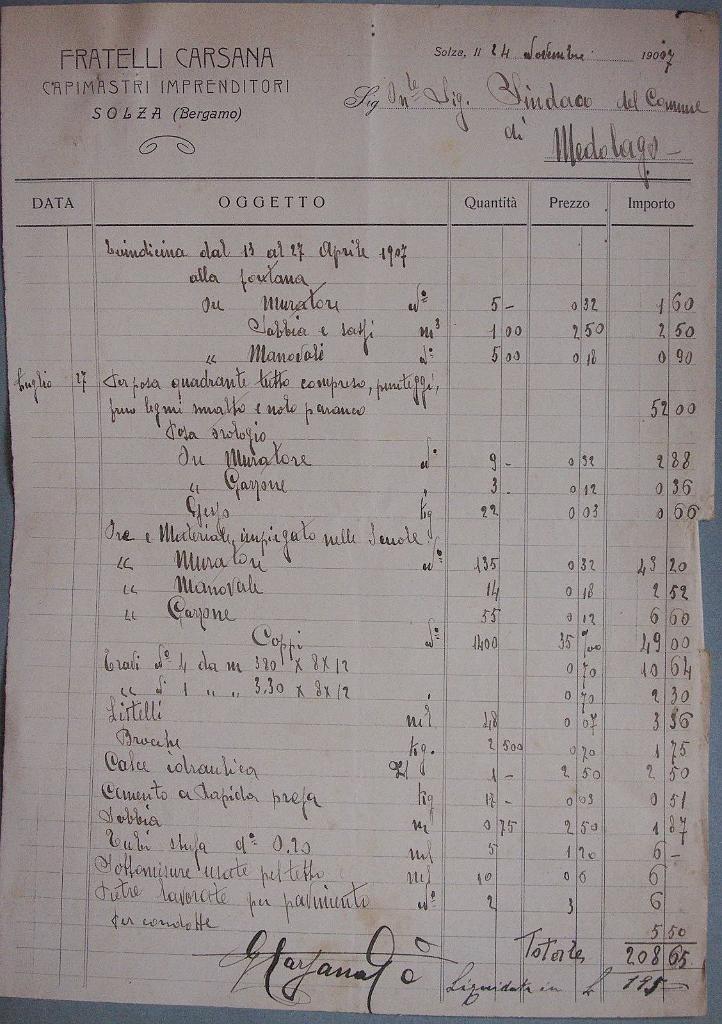 FRATELLI CARSANA
CAPIMASTRI IMPRENDITORI
SOLZA (Bergamo)
Solza, li 24 Novembre 1907
Sig On.le Sig. Sindaco del Comune
di
Medolago
DATA OGGETTO Quantità Prezzo Importo
Quindicina dal 13 al 27 Aprile 1907
alla fontana
Ore Muratore N° 5 - 0 32 1 60
Sabbia e sassi m³ 1 00 2 50 2 50
" Manovale N° 5 00 0 18 0 90
Luglio 27 Per posa quadrante tutto compreso, ponteggi,
legni smalto e nolo paranco 52 00
Posa orologio
Ore Muratore N° 9 - 0 32 2 88
" Garzone " 3 0 12 0 36
Gesso kg 22 0 03 0 66
Ore e Materiale impiegato nelle Scuole
" Muratore N° 135 0 32 43 20
" Manovale 14 0 18 2 52
" Garzone 55 0 12 6 60
Coppi N° 1400 35 %00 49 00
Travi N° 4 da m 380 X 8 X 12 0 70 10 64
" N° 1 " " 3.30 X 8 X 12 0 70 2 30
Listelli ml 48 0 07 3 36
Brocche kg. 2 500 0 70 1 75
Calce idraulica Ql 1 - 2 50 2 50
Cemento a Rapida presa kg 17 - 0 03 0 51
Sabbia m 0 75 2 50 1 87
Tubi stufa d° 0.20 ml 5 1 20 6 -
Sottomisure usate pel tetto ml 10 0 6 6
Pietre lavorate per pavimento N° 2 3 6
Per condotte 5 50
Totale 208 65
G Carsana
Liquidata in L 195 -